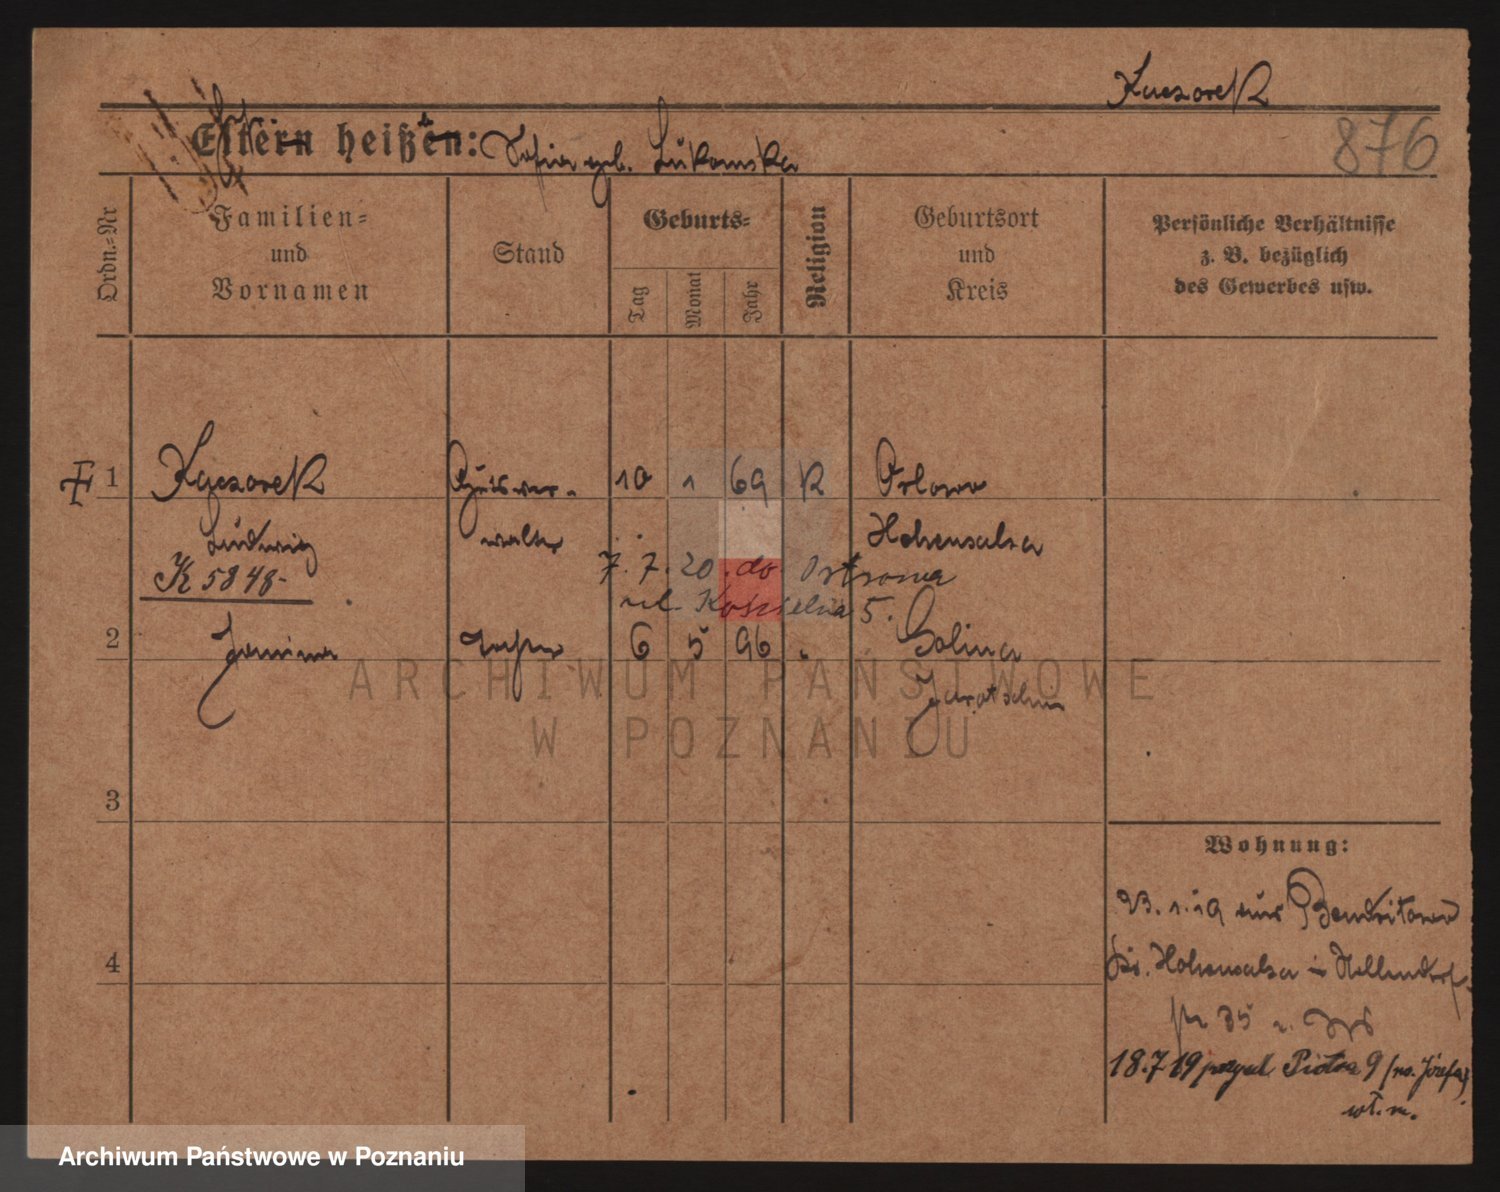 Kaczorek
876
Eltern heißen: Sofia geb. Lukomska
Ordn.-Nr
Familien-
und
Vornamen
Stand
Geburts-
Tag
Monat
Jahr
Religion
Geburtsort
und
Kreis
Persönliche Verhältnisse
z. B. bezüglich
des Gewerbes usw.
1 Kaczorek Gutsver- 10 1 69 K Orlowo
Ludwig walter Hohensalza
K 5848-
7.7.20. do Ostrowa
ul. Koscielna 5.
2 Janina Tochter 6 5 96 Golina
Jarotschin
ARCHIWUM PAŃSTWOWE
W POZNANIU
3
4
Wohnung:
23.1.19 aus
Hohensalza
35
18.7.19 Piotra 9
wł. m.
Archiwum Państwowe w Poznaniu